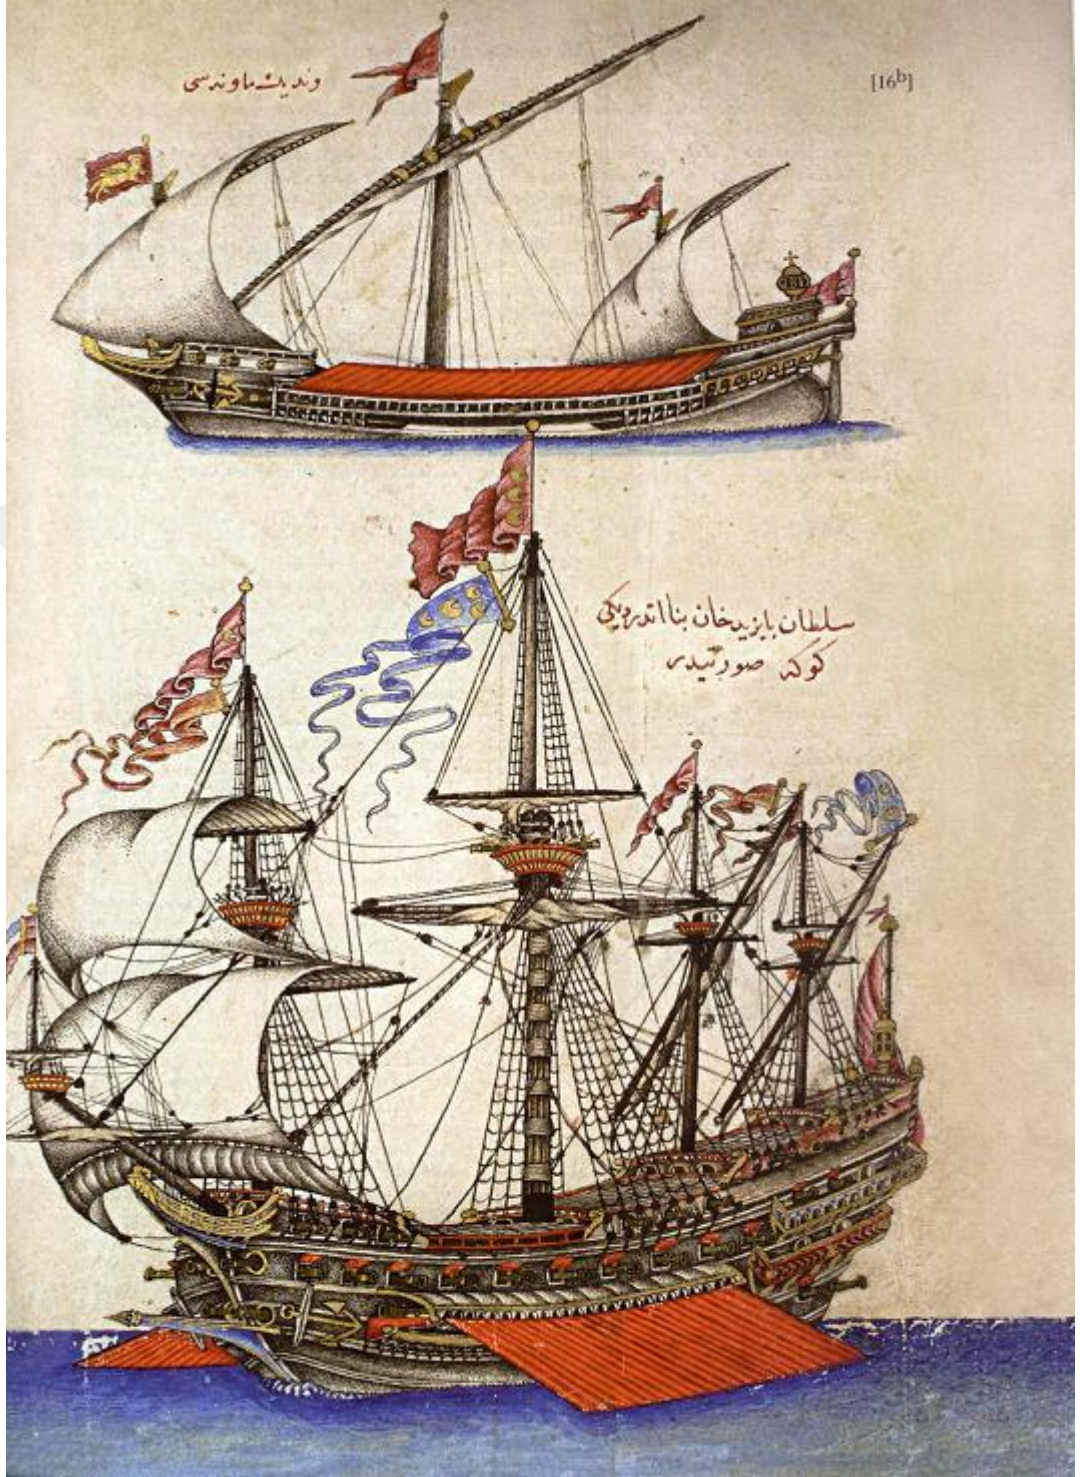 [16b]
وندیك ماونه‌سی
سلطان بایزید خان بنا اتدردیکی
كوكه صورتیدر